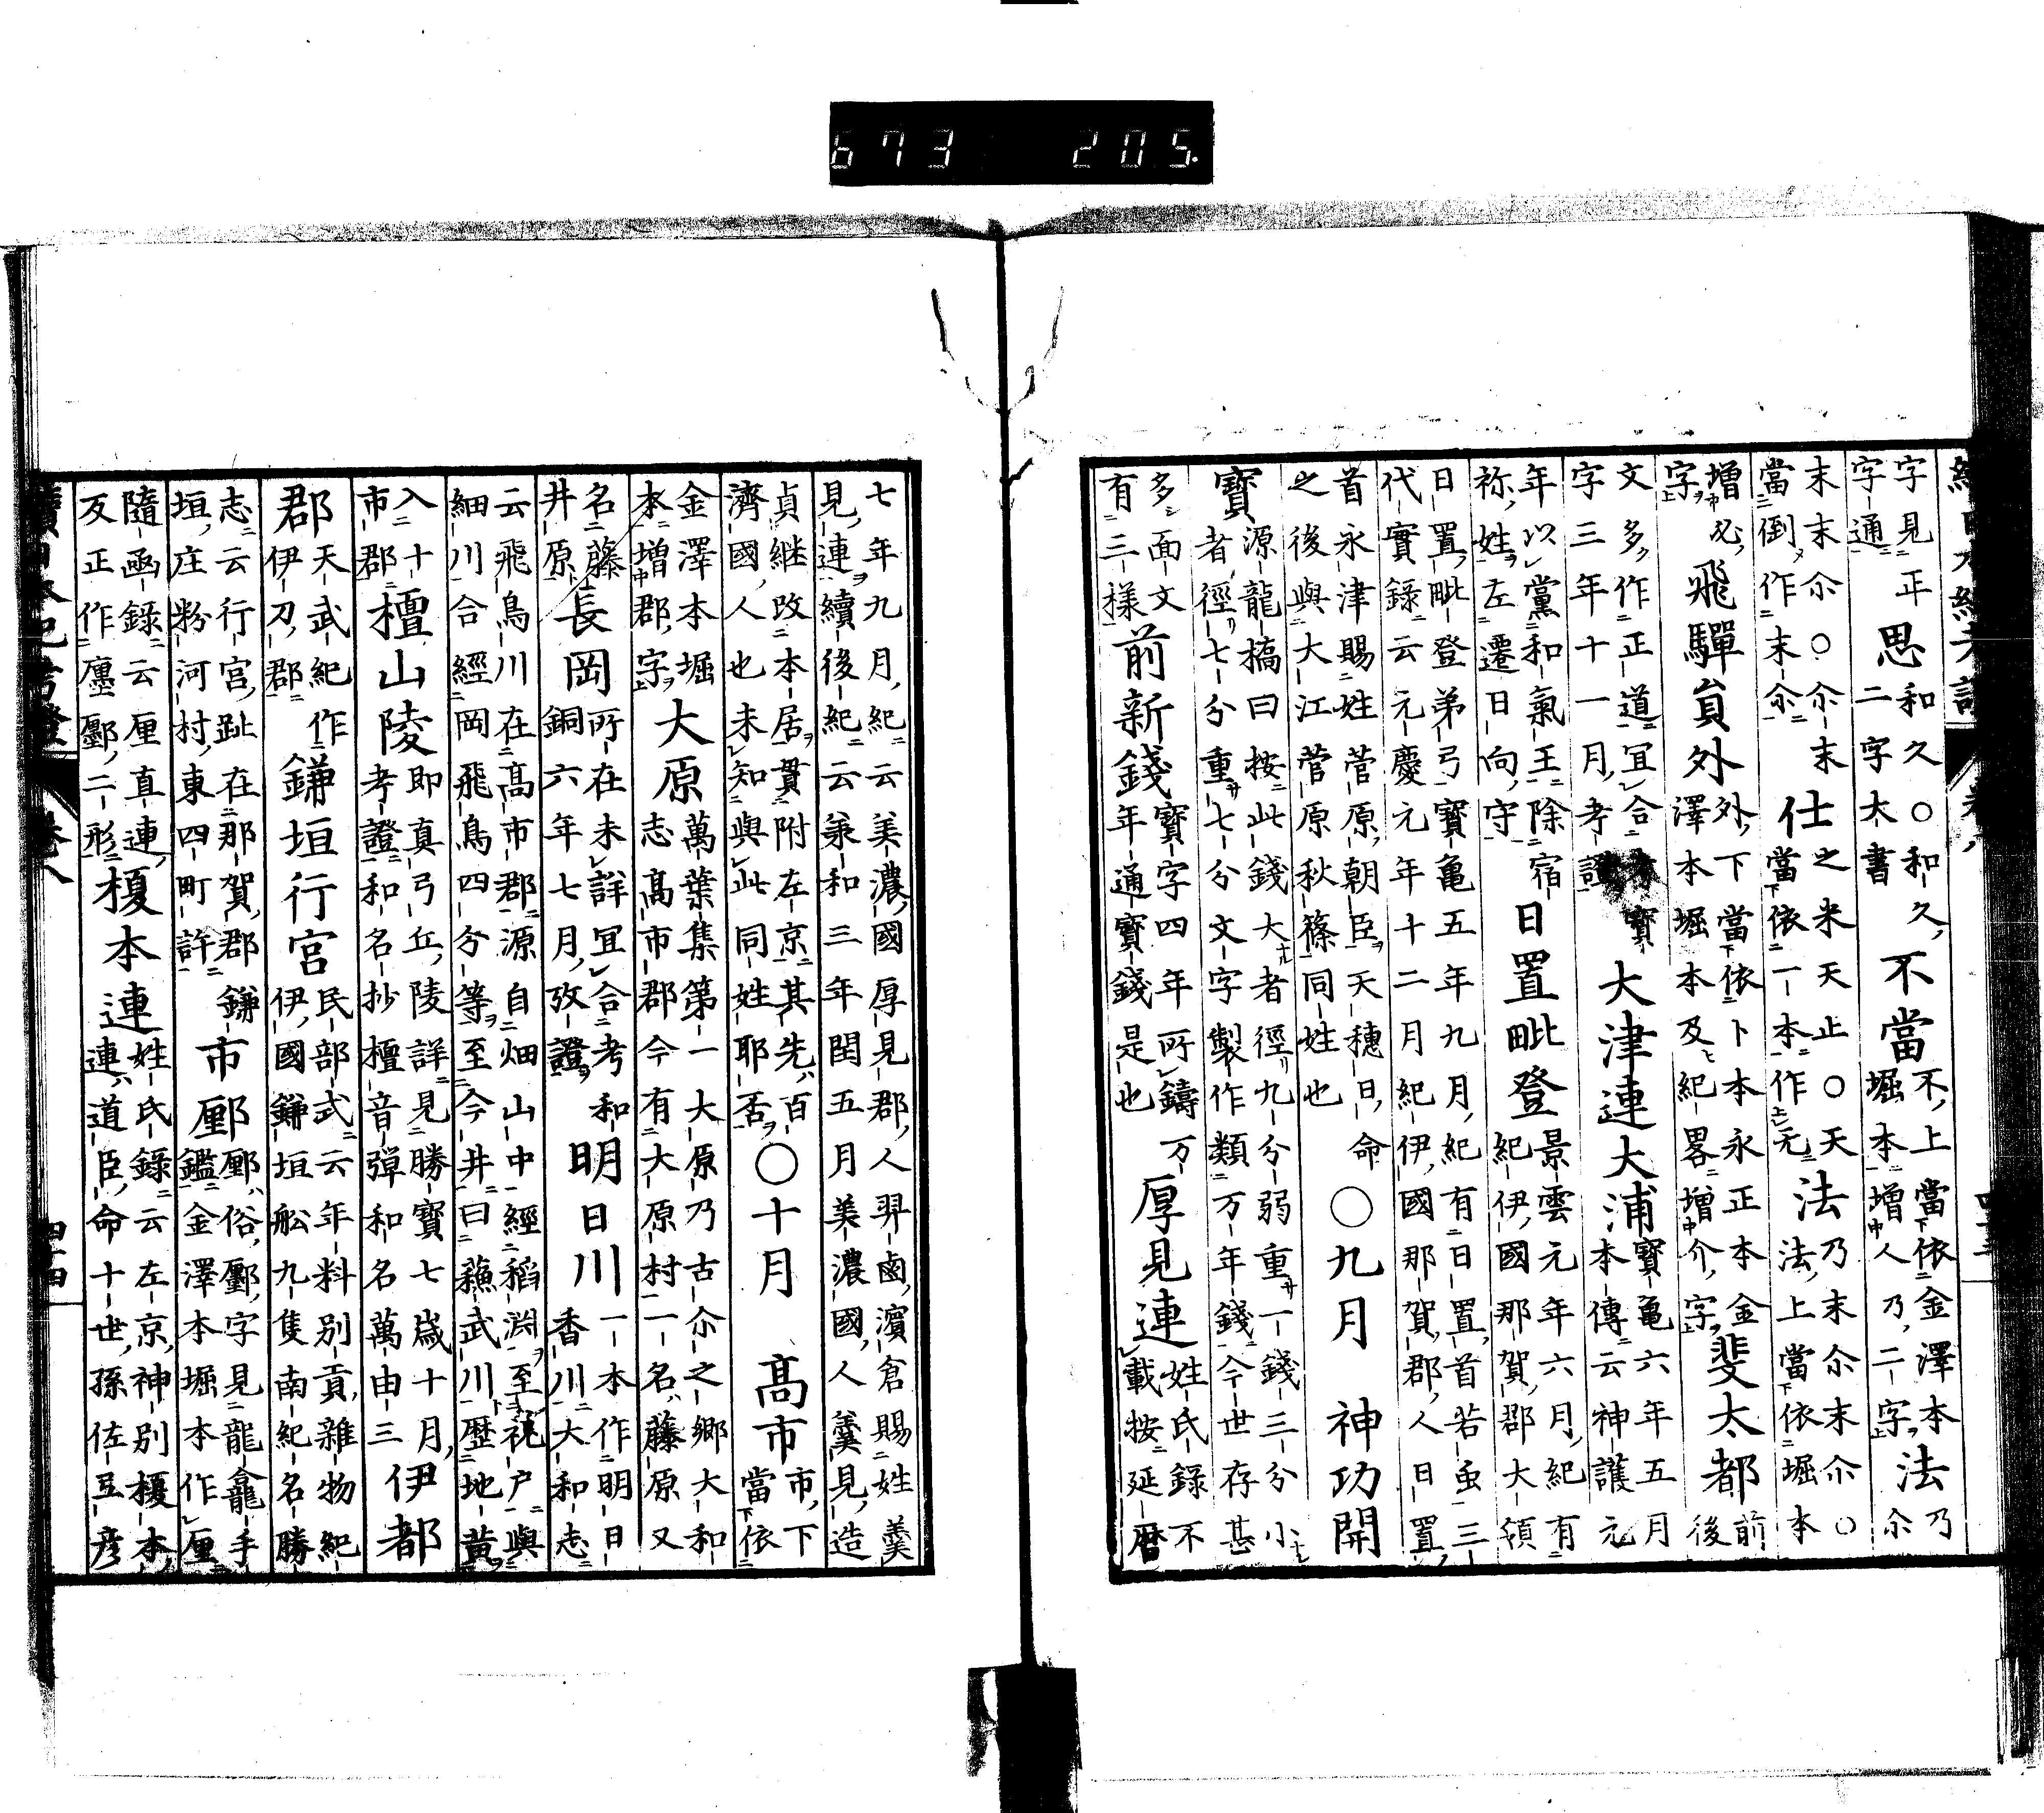 字見正字通 思 和久○和久二字大書 不當 不上當依金澤本堀本増人乃二字 法 乃尓
末末尓○尓末當倒作末尓 仕 之米天止○天當依一本作无 法 乃末尓末尓○法上當依堀本
増必字 飛驒貟外 外下當依卜本永正本金澤本堀本及紀畧増介字 斐太都 前後
文多作正道冝合字三年十一月考證 寳 大津連大浦 寳亀六年五月本傳云神護元
年以黨和氣王除宿祢姓左遷日向守 日置毗登 景雲元年六月紀有紀伊國那賀郡大領
日置毗登弟弓寳亀五年九月紀有日置首若虫三代實録云元慶元年十二月紀伊國那賀郡人日置
首永津賜姓菅原朝臣天穗日命之後與大江菅原秋篠同姓也 ○九月 神功開
寳 源龍搞曰按此錢大者徑九分弱重一錢三分小者徑七分重七分文字製作類万年錢今世存甚
多面文有三様 前新錢 寳字四年所鑄万年通寳錢是也 厚見連 姓氏録不載按延暦
七年九月紀云美濃國厚見郡人羿鹵濱倉賜姓羮見連續後紀云兼和三年閏五月美濃國人羮見造
貞継改本居貫附左京其先百濟國人也未知與此同姓耶否 ○十月 髙市 市下當依
金澤本堀本増郡字 大原 萬葉集第一大原乃古尓之郷大和志髙市郡今有大原村一名藤原又
名藤井原 長岡 所在未詳冝合考和銅六年七月攷證 明日川 一本作明日香川大和志
云飛鳥川在髙市郡源自畑山中經稻渕至祝户與細川合經岡飛鳥四分等至今井曰蘓武川歴地黄
入十市郡 檀山陵 即真弓丘陵詳見勝寳七歳十月考證和名抄檀音弾和名萬由三 伊都
郡 天武紀作伊刀郡 鎌垣行宮 民部式云年料別貢雜物紀伊國鎌垣舩九隻南紀名勝
志云行宮趾在那賀郡鎌垣庄粉河村東四町許 市㕓 㕓俗鄽字見龍龕手鑑金澤本堀本作厘
隨函錄云厘直連反正作廛鄽二形 榎本連 姓氏錄云左京神別榎本連道臣命十世孫佐豆彦